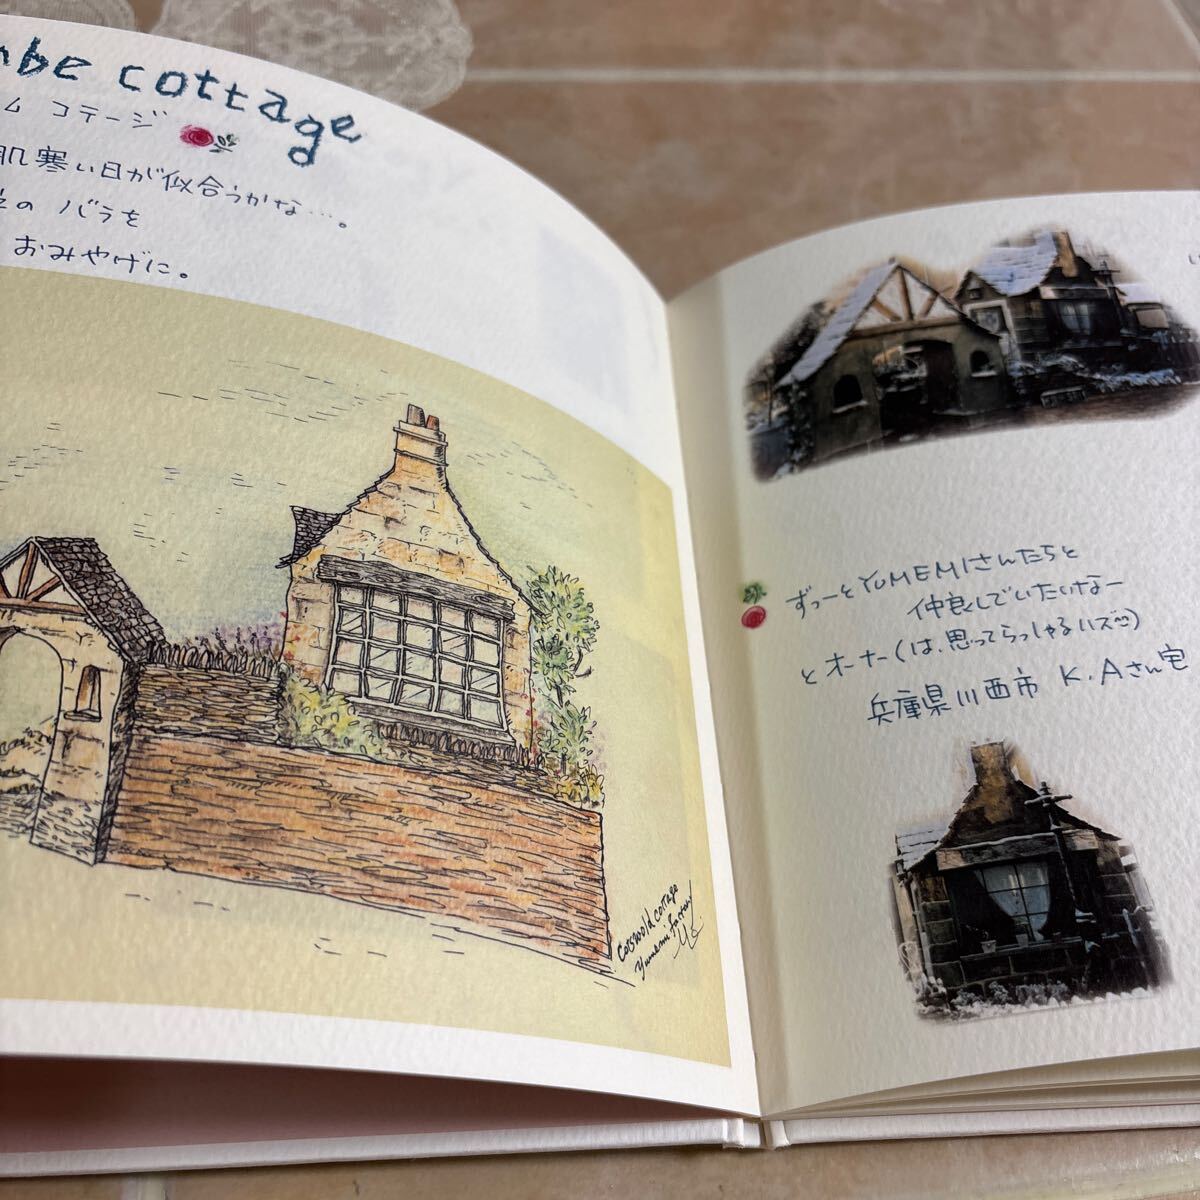 mbe cottage
ム コテージ
肌寒い日が似合うかな…。
のバラを
おみやげに。
Cotswold cottage
Yumemi factory
ずっーとYUMEMIさんたちと
仲良しでいたいなー
とオーナー(は、思ってらっしゃるハズ)
兵庫県川西市 K.Aさん宅
い